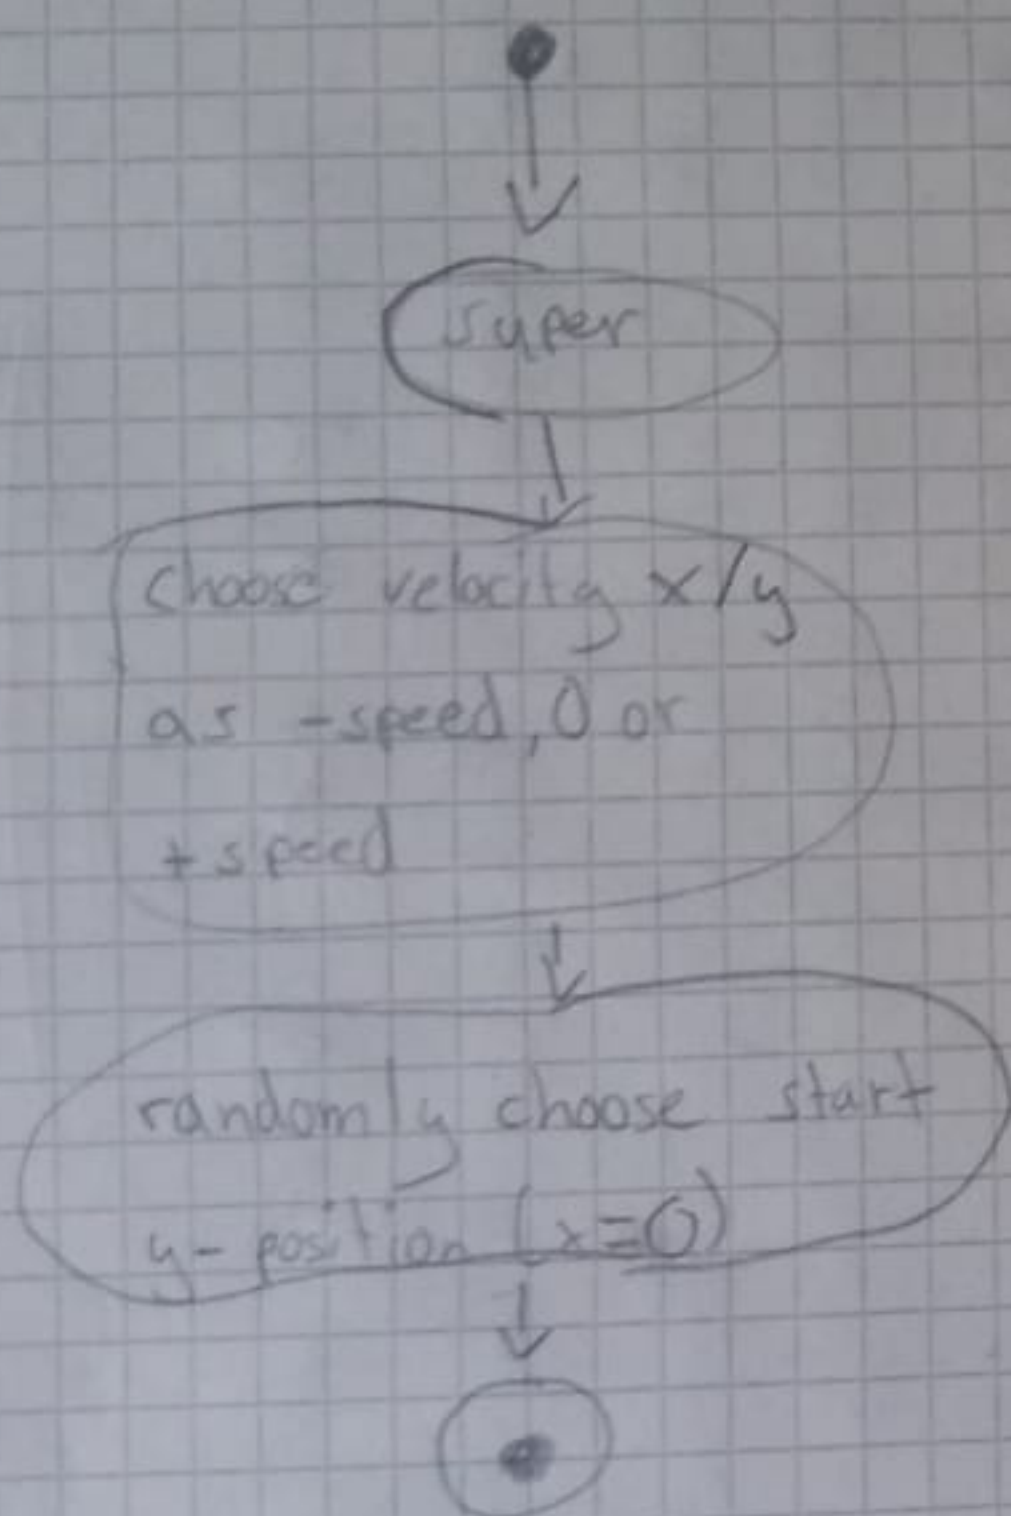 super
choose velocity x/y
as -speed, 0 or
+speed
randomly choose start
y-position (x=0)